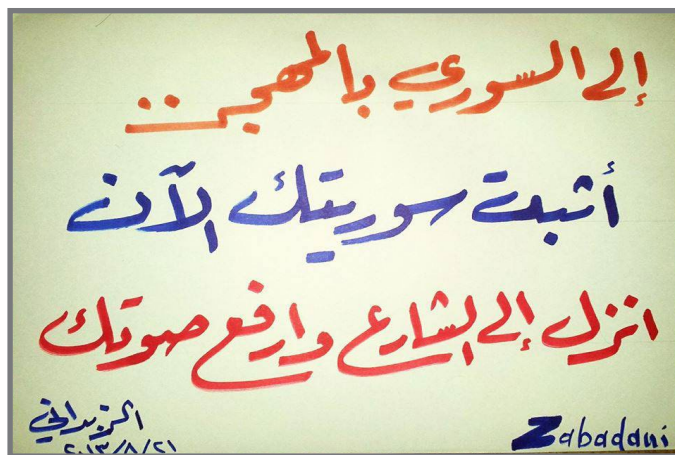 إلى السوري بالمهجر..
أثبت سوريتك الآن
انزل إلى الشارع وارفع صوتك
الزبداني
٢٠١٣/٨/٢١
Zabadani